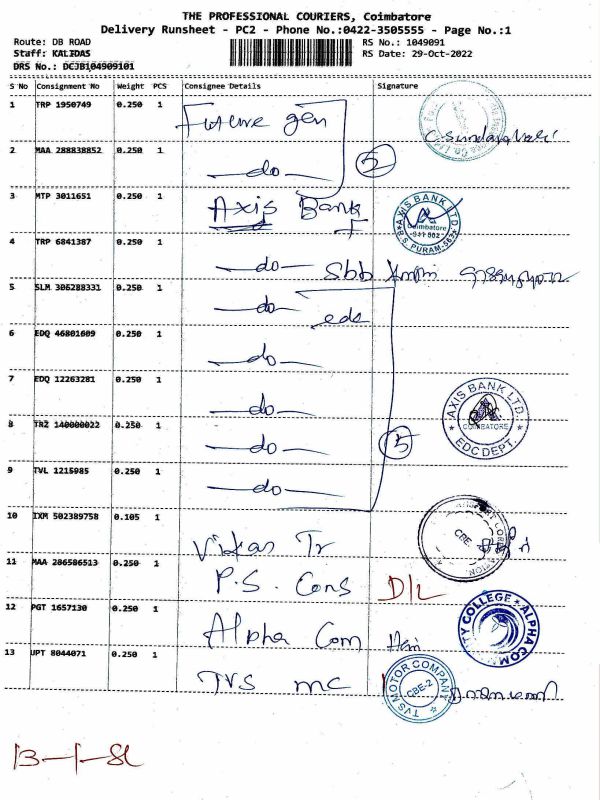 THE PROFESSIONAL COURIERS, Coimbatore
Delivery Runsheet - PC2 - Phone No.:0422-3505555 - Page No.:1
Route: DB ROAD
Staff: KALIDAS
DRS No.: DCJB104909101
RS No.: 1049091
RS Date: 29-Oct-2022
S No Consignment No Weight PCS Consignee Details Signature
1 TRP 1950749 0.250 1 Future gen
2 MAA 288838852 0.250 1 —do— 2
3 MTP 3011651 0.250 1 Axis Bank
AXIS BANK LTD. Coimbatore R.S. PURAM
4 TRP 6841387 0.250 1 —do—
5 SLM 306288331 0.250 1 —do— edc
6 EDQ 46801609 0.250 1 —do—
7 EDQ 12263281 0.250 1 —do—
AXIS BANK LTD. COIMBATORE EDC DEPT.
8 TRZ 140000022 0.250 1 —do— 5
9 TVL 1215985 0.250 1 —do—
10 IXM 502389758 0.105 1 Vikas Tr
CBE.
11 MAA 286586513 0.250 1 P.S. Cons D/L
12 PGT 1657130 0.250 1 Alpha Com
COLLEGE * ALPHA
13 UPT 8044071 0.250 1 TVS mc
TVS MOTOR COMPANY CBE-2